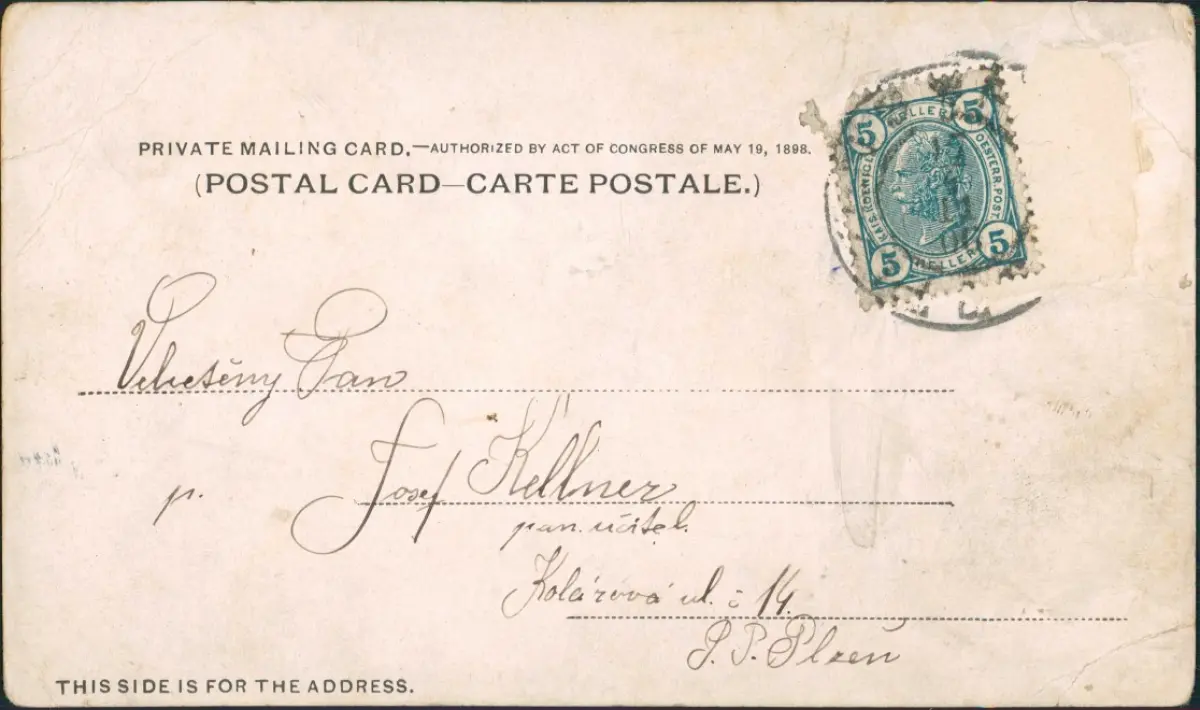 PRIVATE MAILING CARD.—AUTHORIZED BY ACT OF CONGRESS OF MAY 19, 1898.
(POSTAL CARD—CARTE POSTALE.)
5 HELLER 5
KAIS. KOENIGL. OESTERR. POST
5 HELLER 5
Velectěný Pan
p. Josef Kellner
pan. učitel.
Kolárová ul. č 14.
P. P. Plzeň
THIS SIDE IS FOR THE ADDRESS.